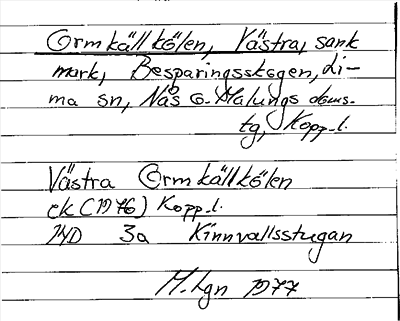 Ormkällkölen, Västra, sank
mark, Besparingsskogen, Li-
ma sn, Nås o. Malungs doms-
tg, Kopp.l.
Västra Ormkällkölen
ek (1976) Kopp.l.
14D 3a Kinnvallsstugan
M.Lgn 1977